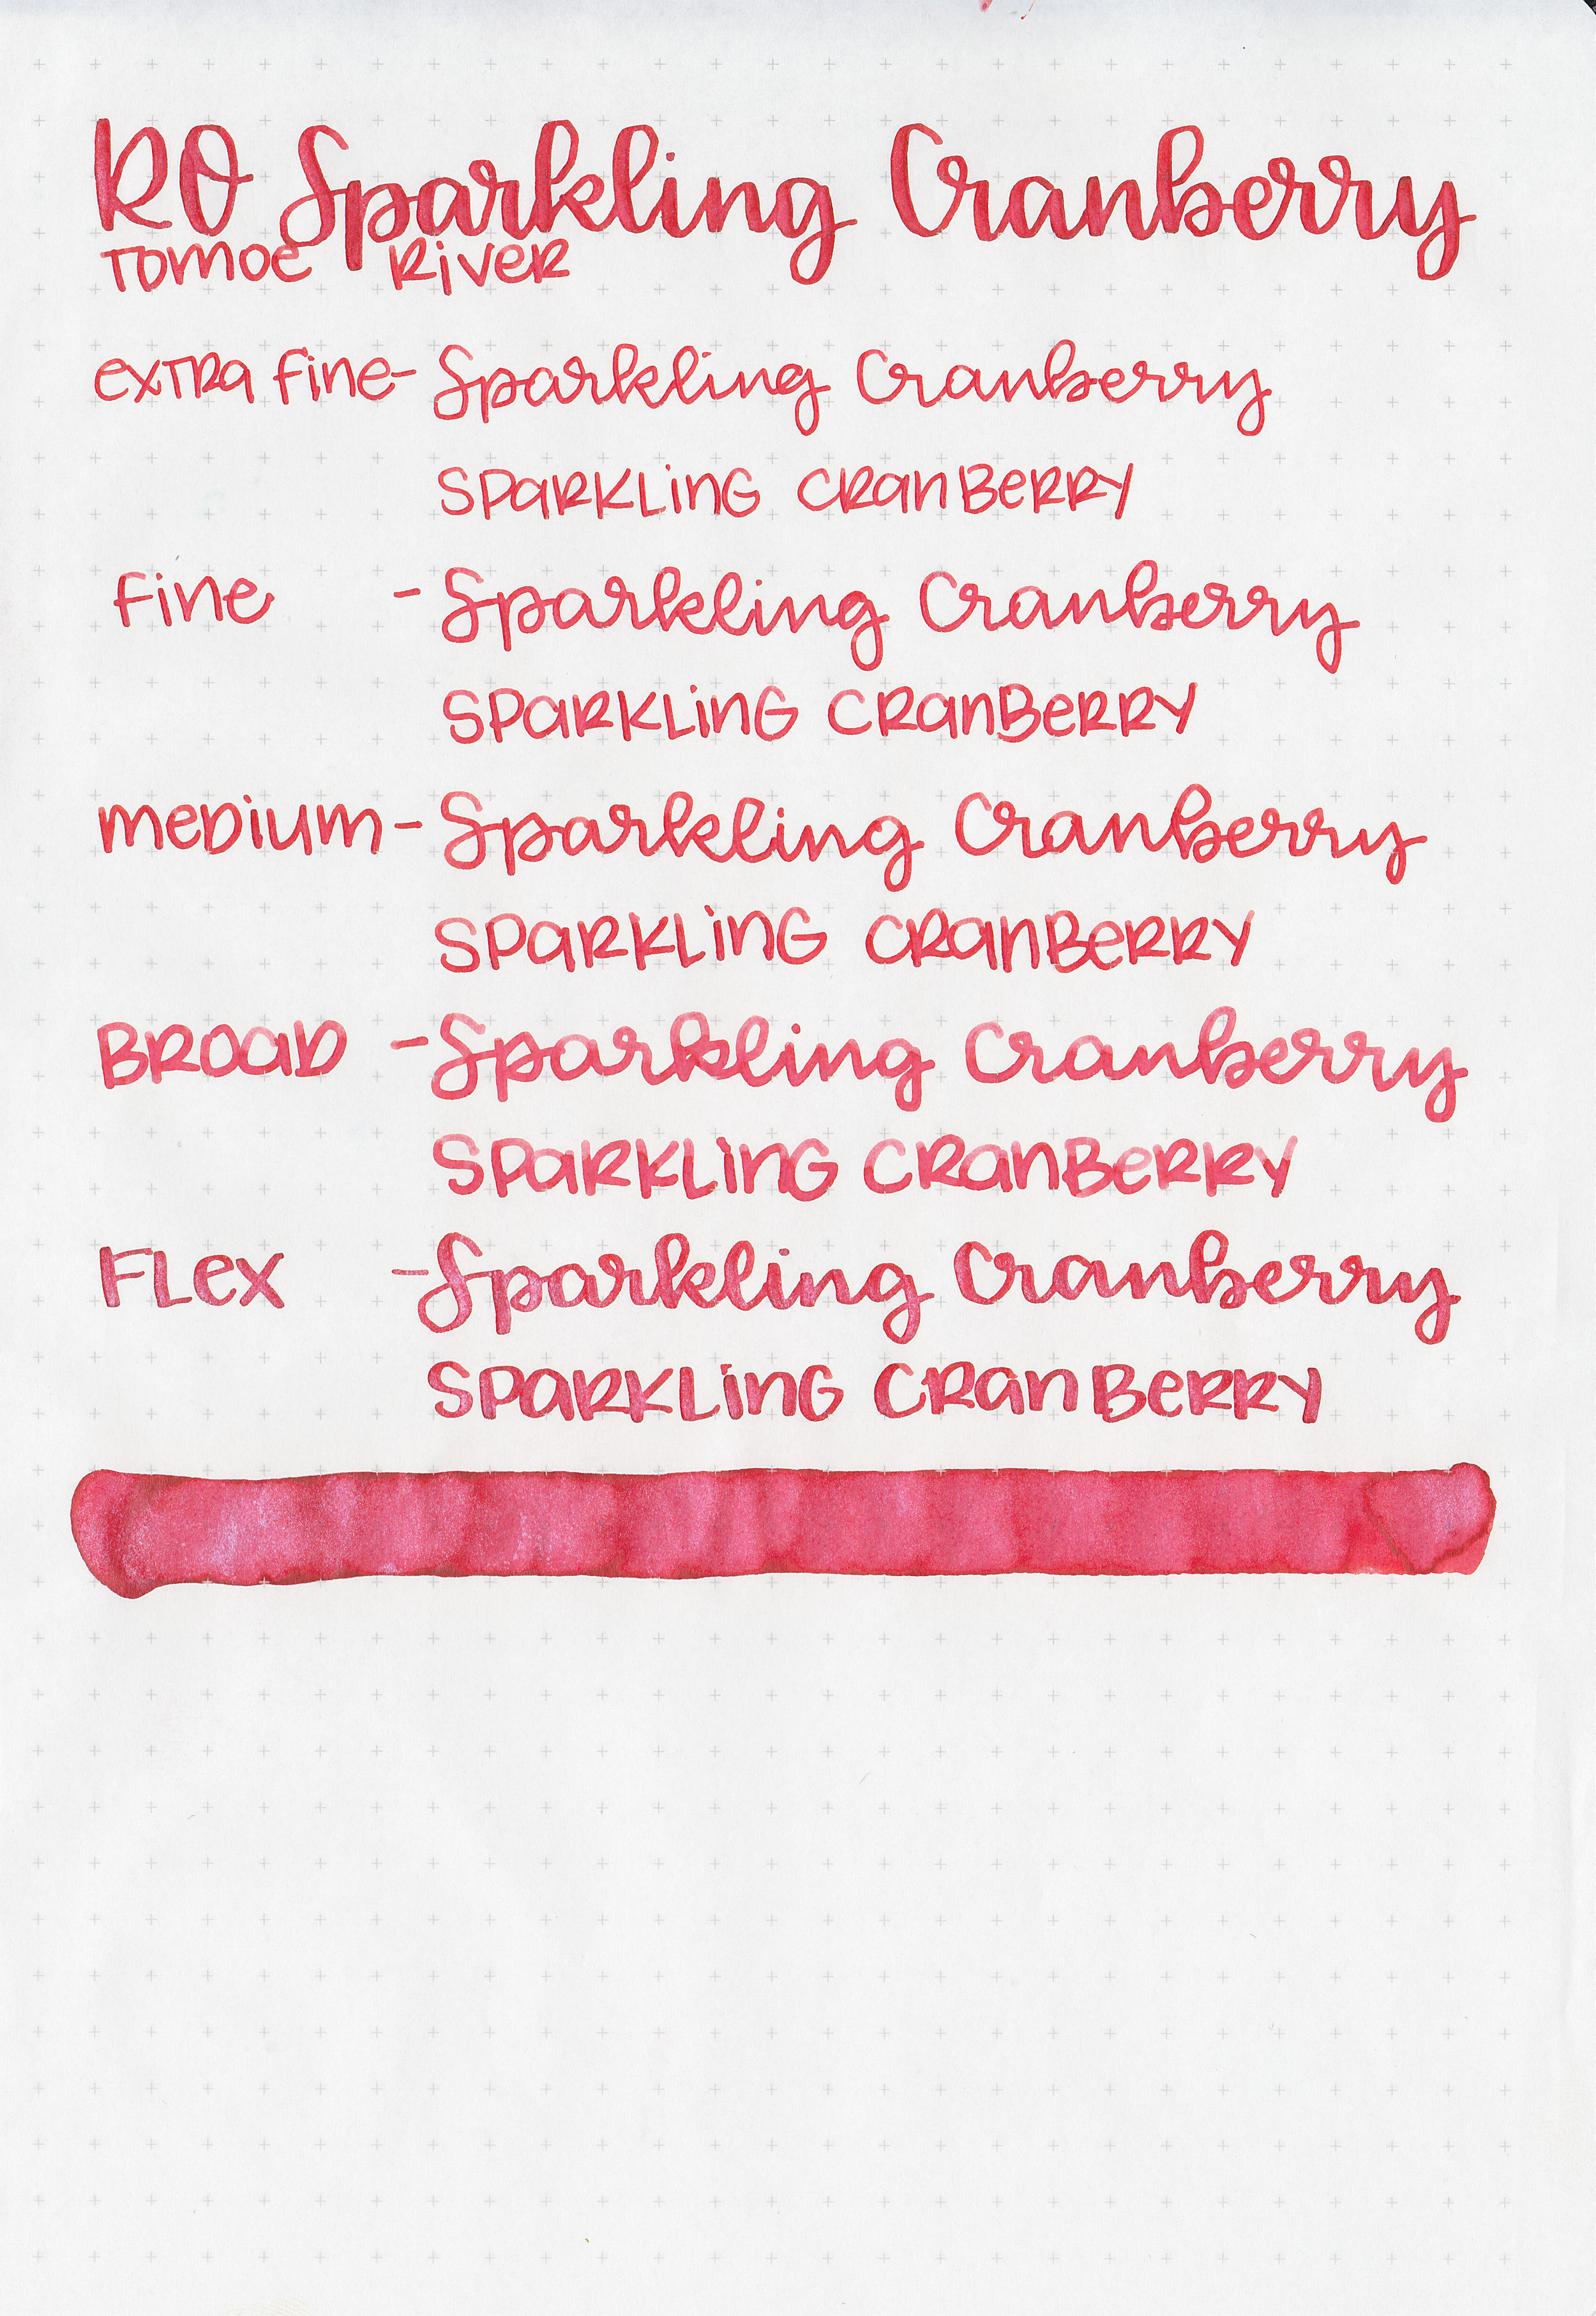 RO Sparkling Cranberry
Tomoe River
extra fine - Sparkling Cranberry
SPARKLING CRANBERRY
fine - Sparkling Cranberry
SPARKLING CRANBERRY
medium - Sparkling Cranberry
SPARKLING CRANBERRY
BROAD - Sparkling Cranberry
SPARKLING CRANBERRY
FLEX - Sparkling Cranberry
SPARKLING CRANBERRY